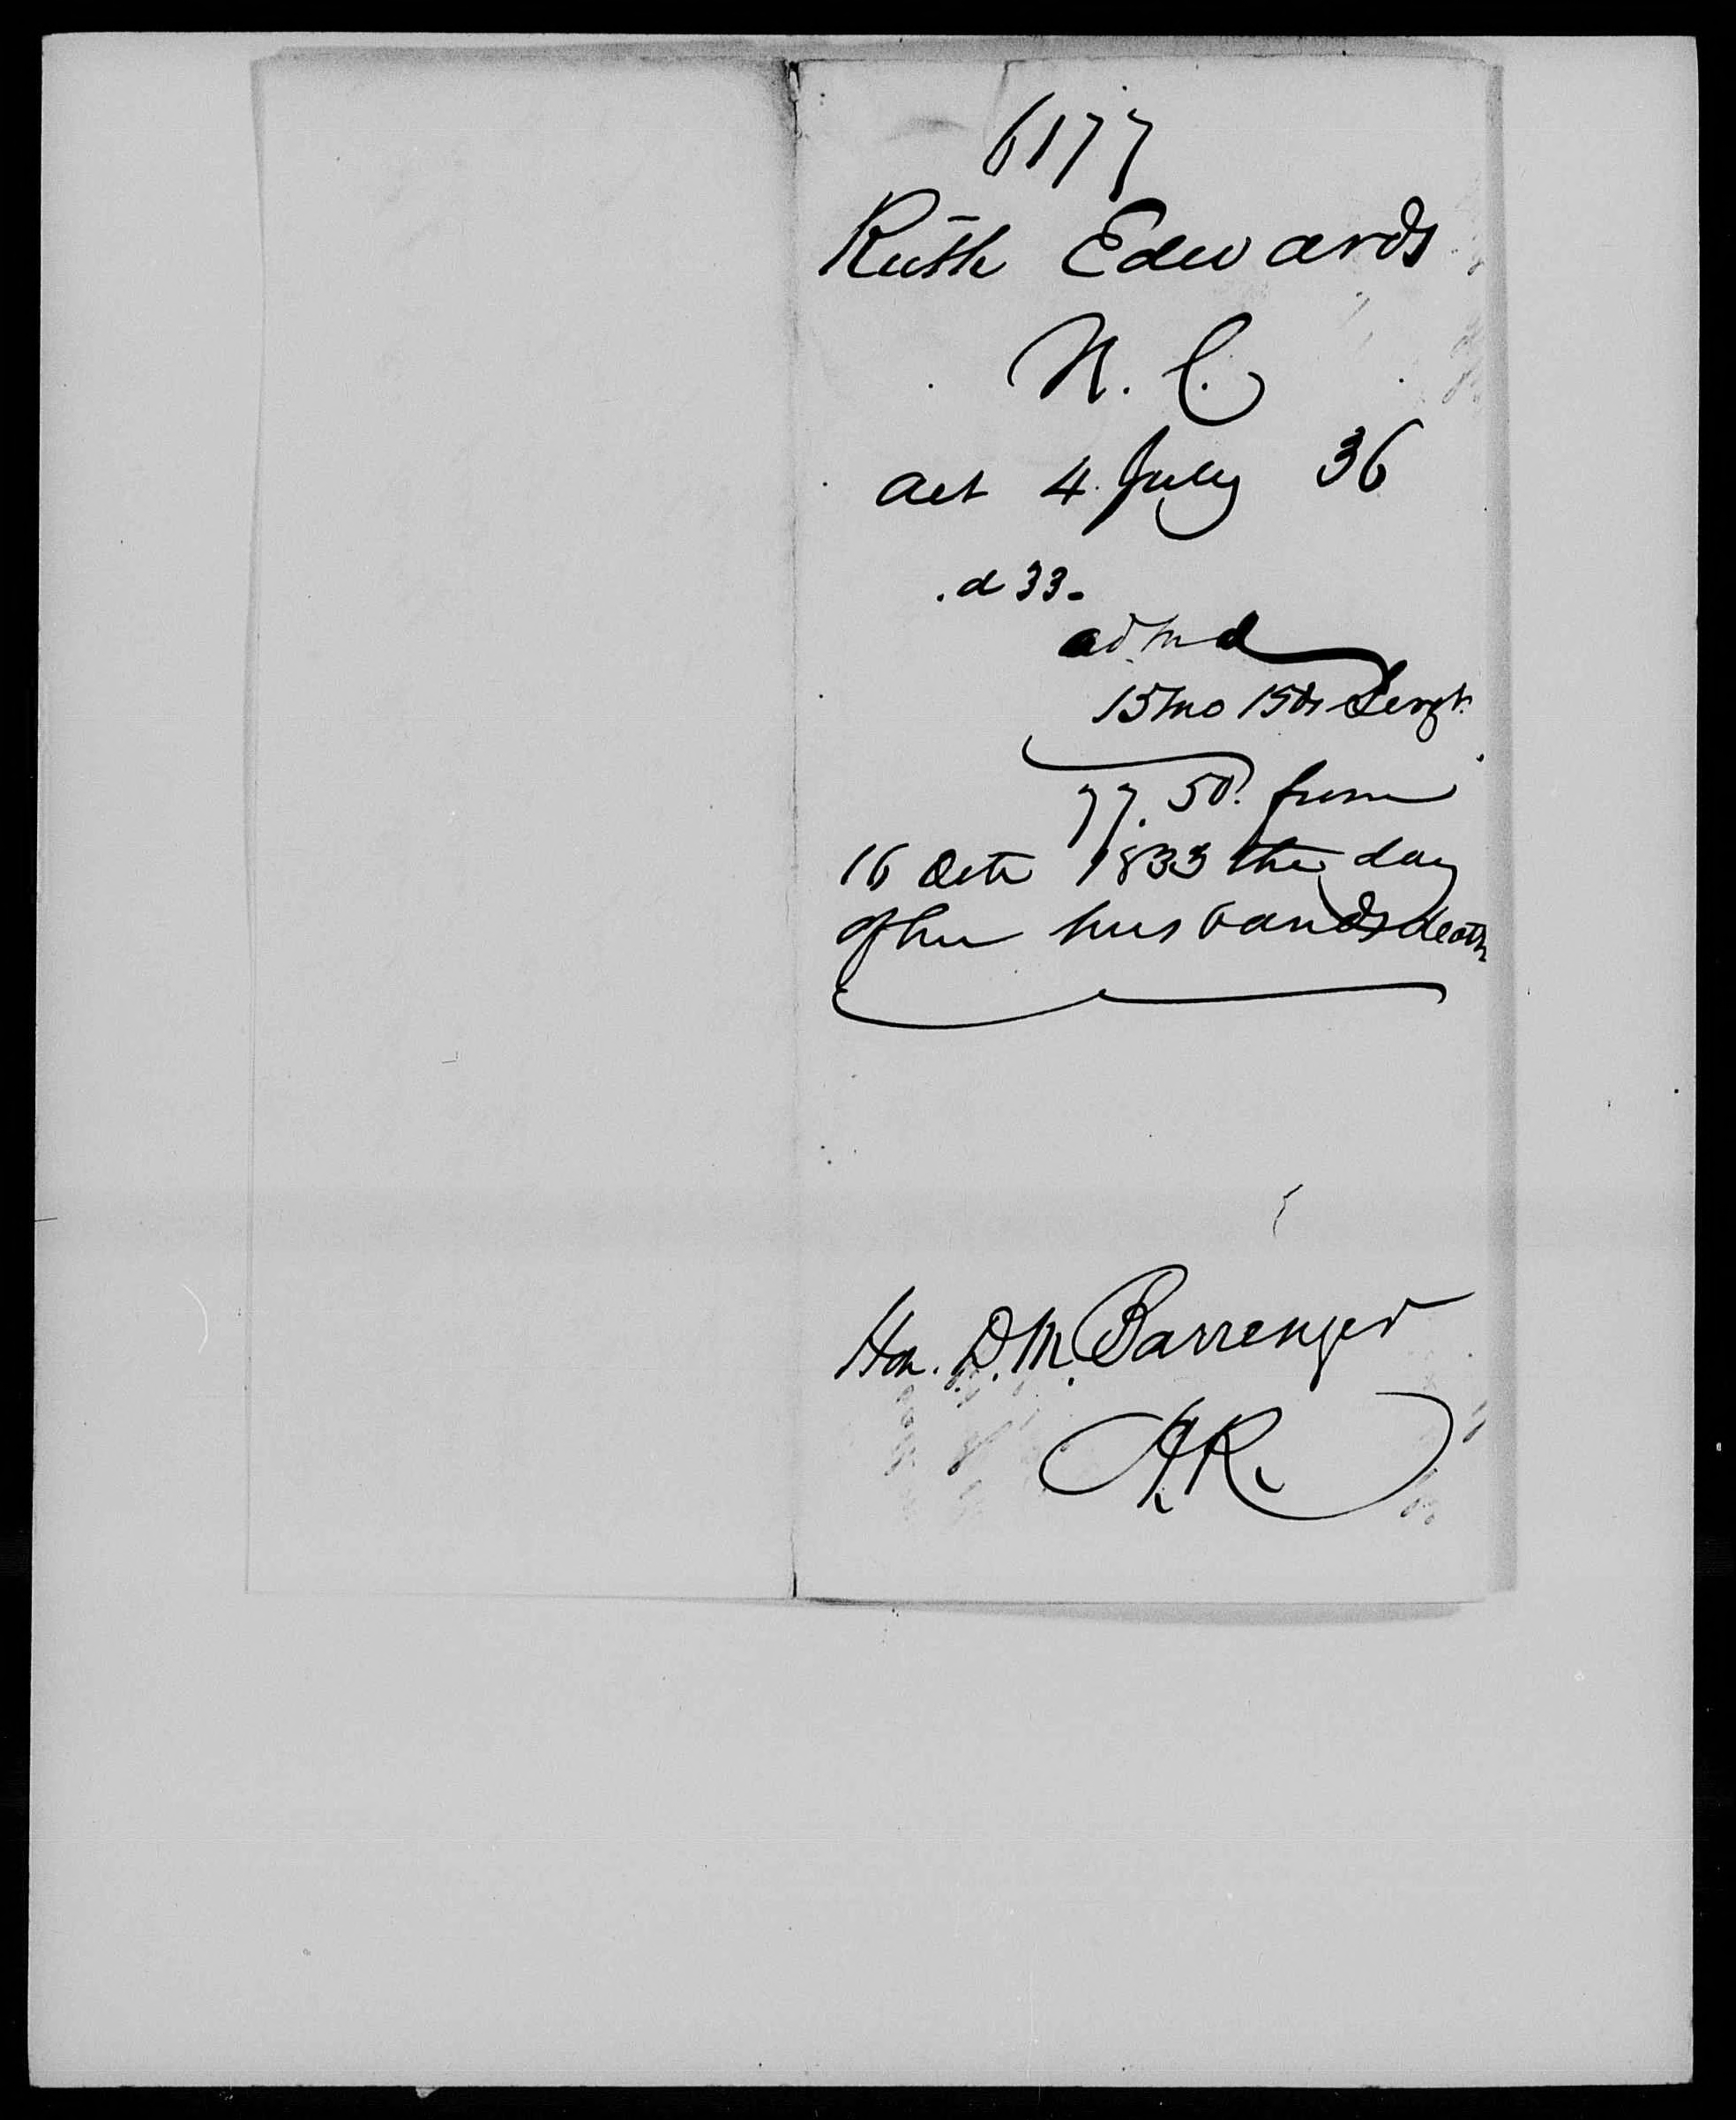 6177
Ruth Edwards
N. C.
Act 4. July 36
d 33-
ad.md
15 mo 15ds Sergt
77.50. from
16 Octr 1833 the day
of her husbands death
Hon. D. M. Barrenger
HR.